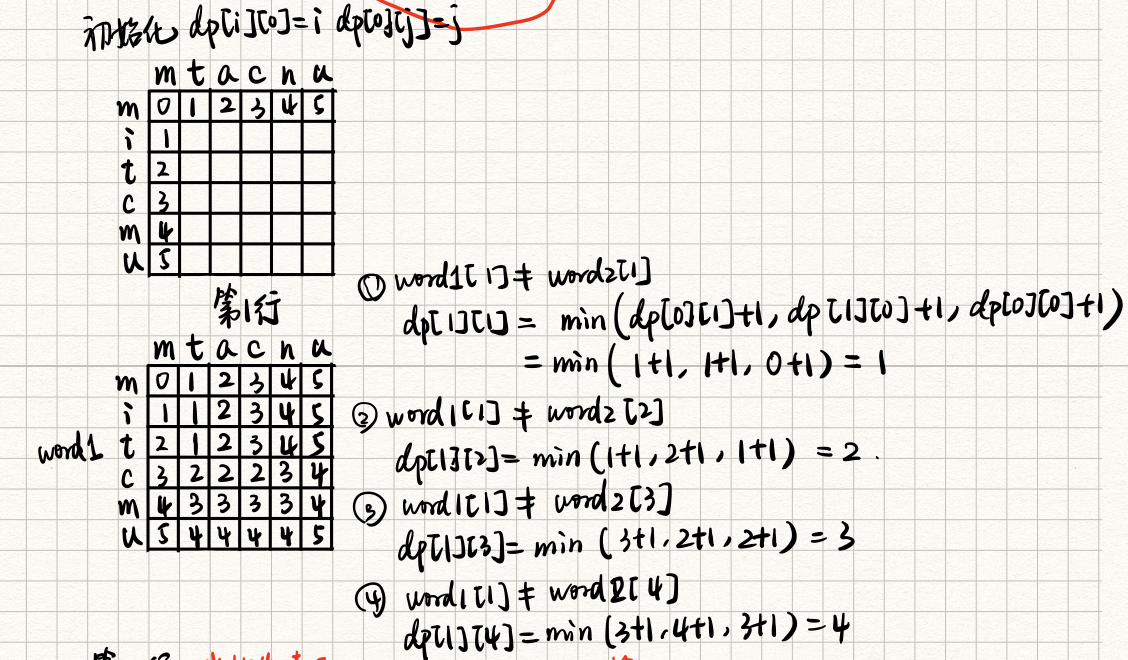 初始化 dp[i][0]=i dp[0][j]=j
m t a c n u
m 0 1 2 3 4 5
i 1
t 2
c 3
m 4
u 5
第1行
m t a c n u
m 0 1 2 3 4 5
i 1 1 2 3 4 5
word1 t 2 1 2 3 4 5
c 3 2 2 2 3 4
m 4 3 3 3 3 4
u 5 4 4 4 4 5
① word1[1] ≠ word2[1]
dp[1][1] = min(dp[0][1]+1, dp[1][0]+1, dp[0][0]+1)
= min( 1+1, 1+1, 0+1) = 1
② word1[1] ≠ word2[2]
dp[1][2]= min(1+1, 2+1, 1+1) = 2 .
③ word1[1] ≠ word2[3]
dp[1][3]= min (3+1, 2+1, 2+1) = 3
④ word1[1] ≠ word2[4]
dp[1][4]= min (3+1, 4+1, 3+1) = 4